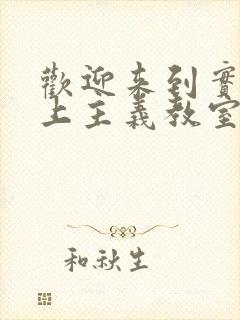 歡迎来到實
上主義教室
和秋生